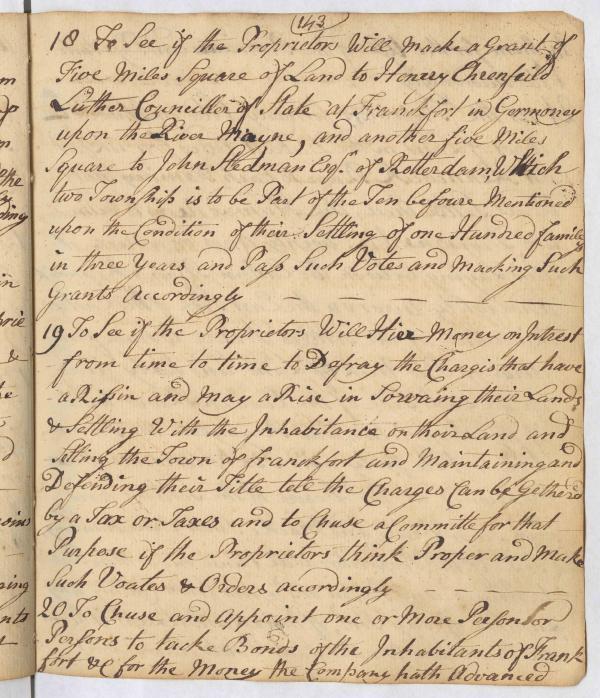 143
18 To See if the Proprietors Will Macke a Grant of
Five Miles Square of Land to Henrry Ehrenfeild
Luther Councillor of State at Franckfort in Germoney
upon the River Mayne, and another five Miles
Square to John Stedman Esqr. of Rotterdam, Which
two Townships is to be Part of the Ten befoure Mentioned
upon the Condition of their Settling of one Hundred family
in three Years and Pass Such Votes and Macking Such
Grants Accordingly
19 To See if the Proprietors Will Hier Money on Intrest
from time to time to Defray the Chargis that have
a Rissin and May a Rise in Sorvaing their Lands
& Settling With the Inhabitance on their Land and
Setling the Town of franckfort and Maintaining and
Defending their Title tele the Charges Can be Getherd
by a Tax or Taxes and to Chuse a Committe for that
Purpose if the Proprietors think Proper and Make
Such Voates & Orders accordingly
20 To Chuse and Appoint one or More Person or
Persons to tacke Bonds of the Inhabitants of Frank
fort &c for the Money the Company hath Advanced